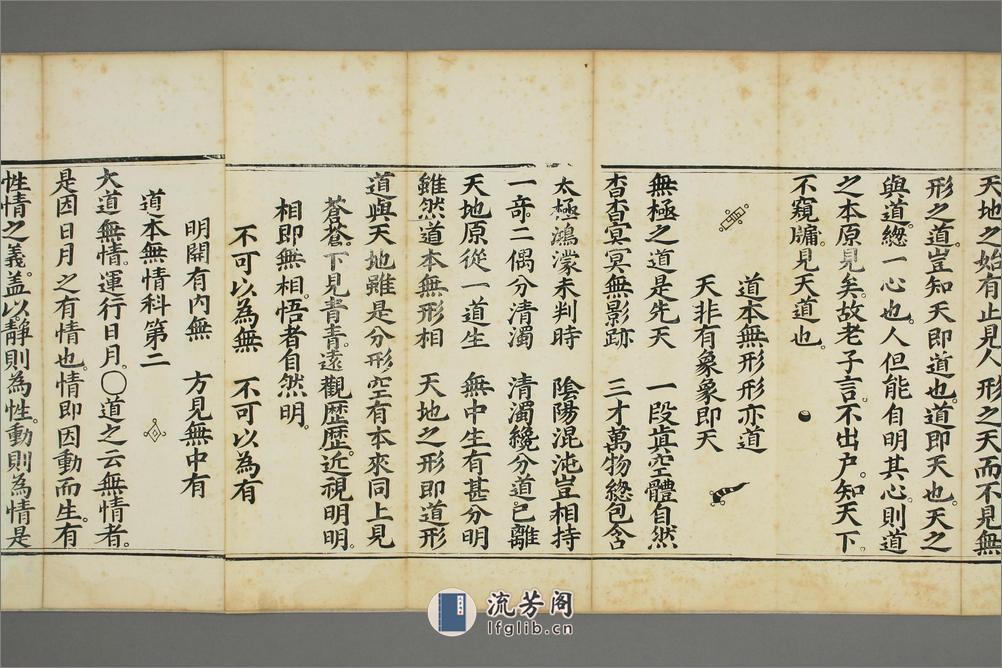 天地之始有止見人形之天而不見無
形之道豈知天即道也道即天也天之
與道總一心也人但能自明其心則道
之本原見矣故老子言不出户知天下
不窺牖見天道也
道本無形形亦道
天非有象象即天
無極之道是先天　一段真空體自然
杳杳冥冥無影跡　三才萬物總包含
太極鴻濛未判時　陰陽混沌豈相持
一竒二偶分清濁　清濁纔分道已離
天地原從一道生　無中生有甚分明
雖然道本無形相　天地之形即道形
道與天地雖是分形空有本來同上見
蒼蒼下見青青遠觀歷歷近視明明
相即無相悟者自然明
不可以為無　不可以為有
明開有內無　方見無中有
道本無情科第二
大道無情運行日月○道之云無情者
是因日月之有情也情即因動而生有
性情之義蓋以靜則為性動則為情是
流芳阁
lfglib.cn